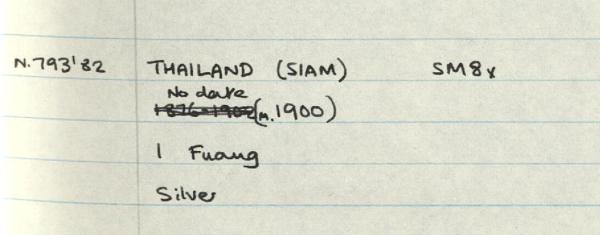 N.793'82 THAILAND (SIAM) SM8x
No date
1876-1902 (m.1900)
1 Fuang
Silver